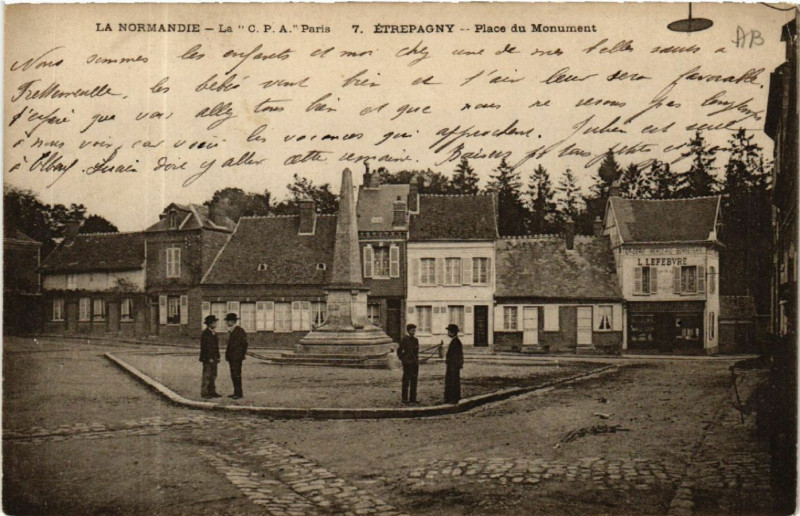 LA NORMANDIE – La "C. P. A." Paris    7. ÉTREPAGNY -- Place du Monument
AB
Nous sommes les enfants et moi chez une de mes belles sœurs à
les bébés vont bien et l'air leur sera favorable.
J'espère que vous allez tous bien et que nous ne serons pas longtemps
à nous voir, car voici les vacances qui approchent. Julien est seul
à dire y aller cette semaine. Baisers
L. LEFEBVRE